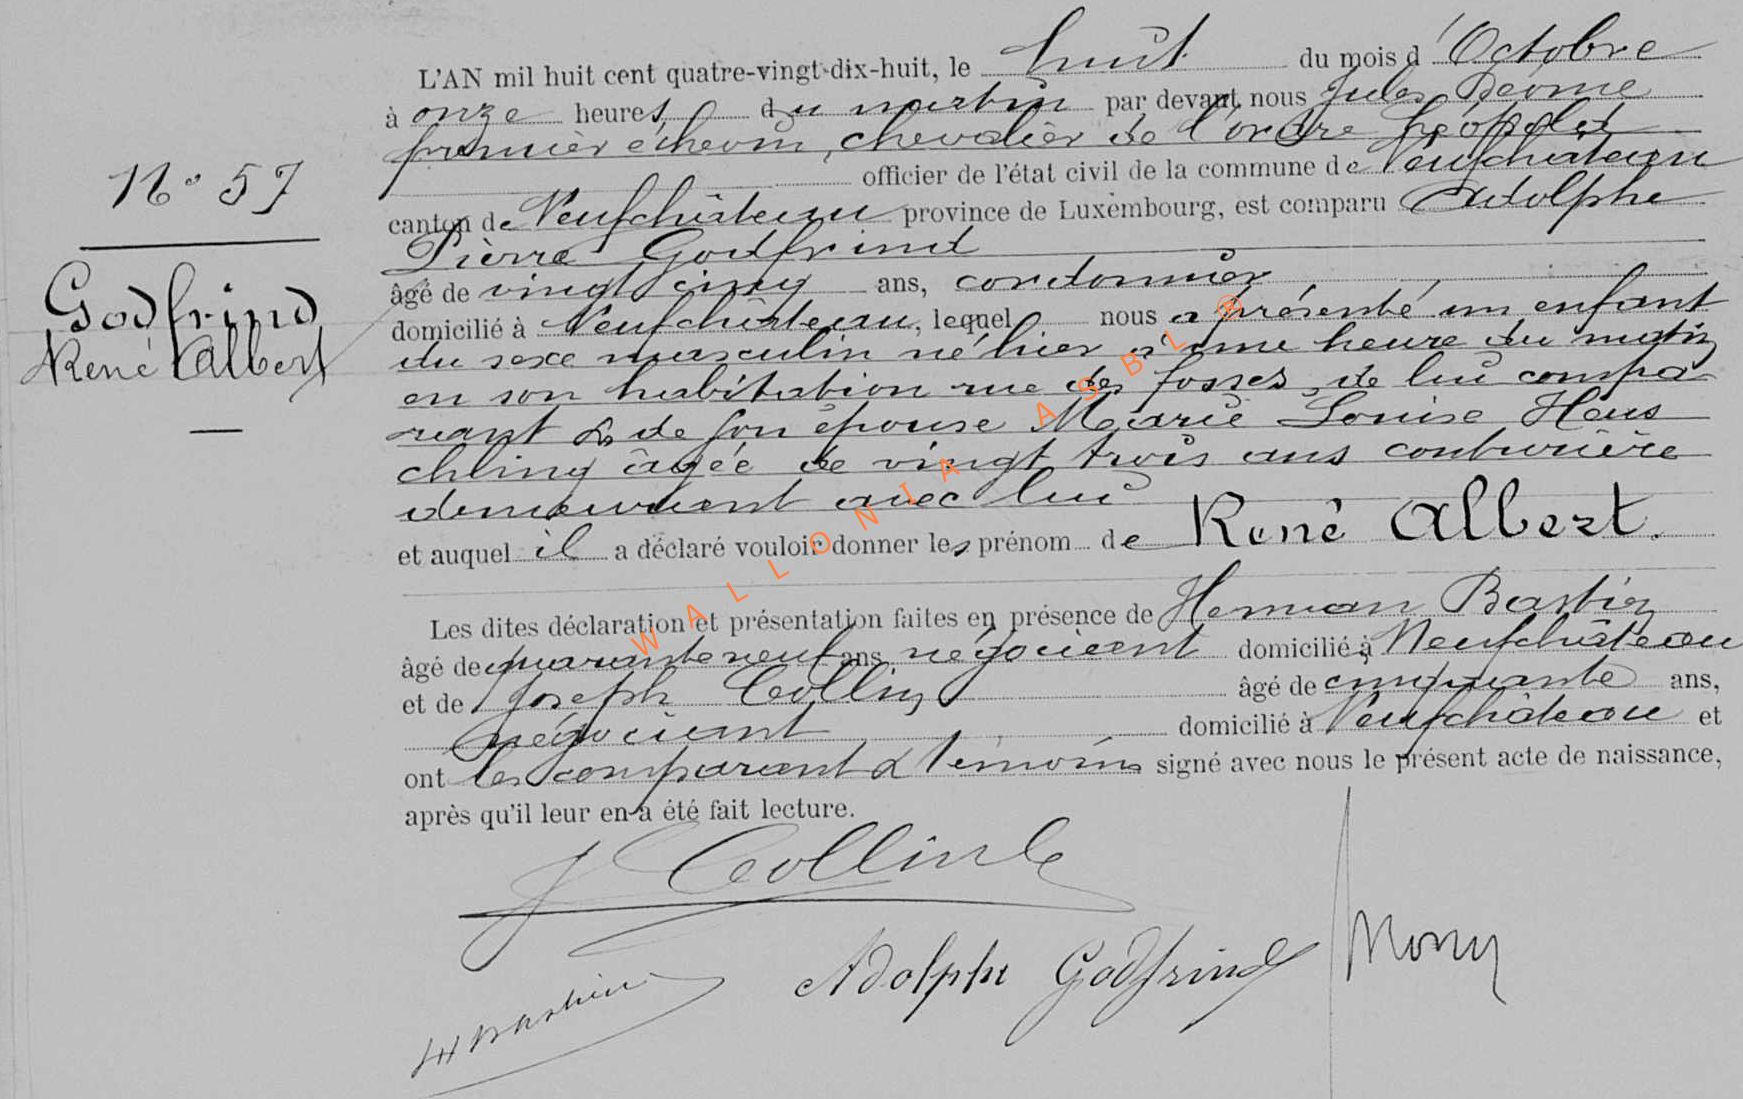 L'AN mil huit cent quatre-vingt-dix-huit, le huit du mois d'Octobre
à onze heures, du matin par devant nous Jules
premier échevin, chevalier de l'ordre Léopold
officier de l'état civil de la commune de Neufchâteau
canton de Neufchâteau province de Luxembourg, est comparu Adolphe
Pierre Godfrind
âgé de vingt cinq ans, cordonnier
domicilié à Neufchâteau, lequel nous a présenté un enfant
du sexe masculin né hier à une heure du matin
en son habitation rue des fossés, de lui compa
rant & de son épouse Marie Louise Heus
chling âgée de vingt trois ans couturière
demeurant avec lui
et auquel il a déclaré vouloir donner les prénom de René Albert.
Les dites déclaration et présentation faites en présence de Herman Bastin
âgé de quarante neuf ans négociant domicilié à Neufchâteau
et de Joseph Collin âgé de cinquante ans,
négociant domicilié à Neufchâteau et
ont les comparant & témoins signé avec nous le présent acte de naissance,
après qu'il leur en a été fait lecture.
N° 57
Godfrind
René Albert
J Collin
Adolphe Godfrind
H Bastin
WALLONIA ASBL ®